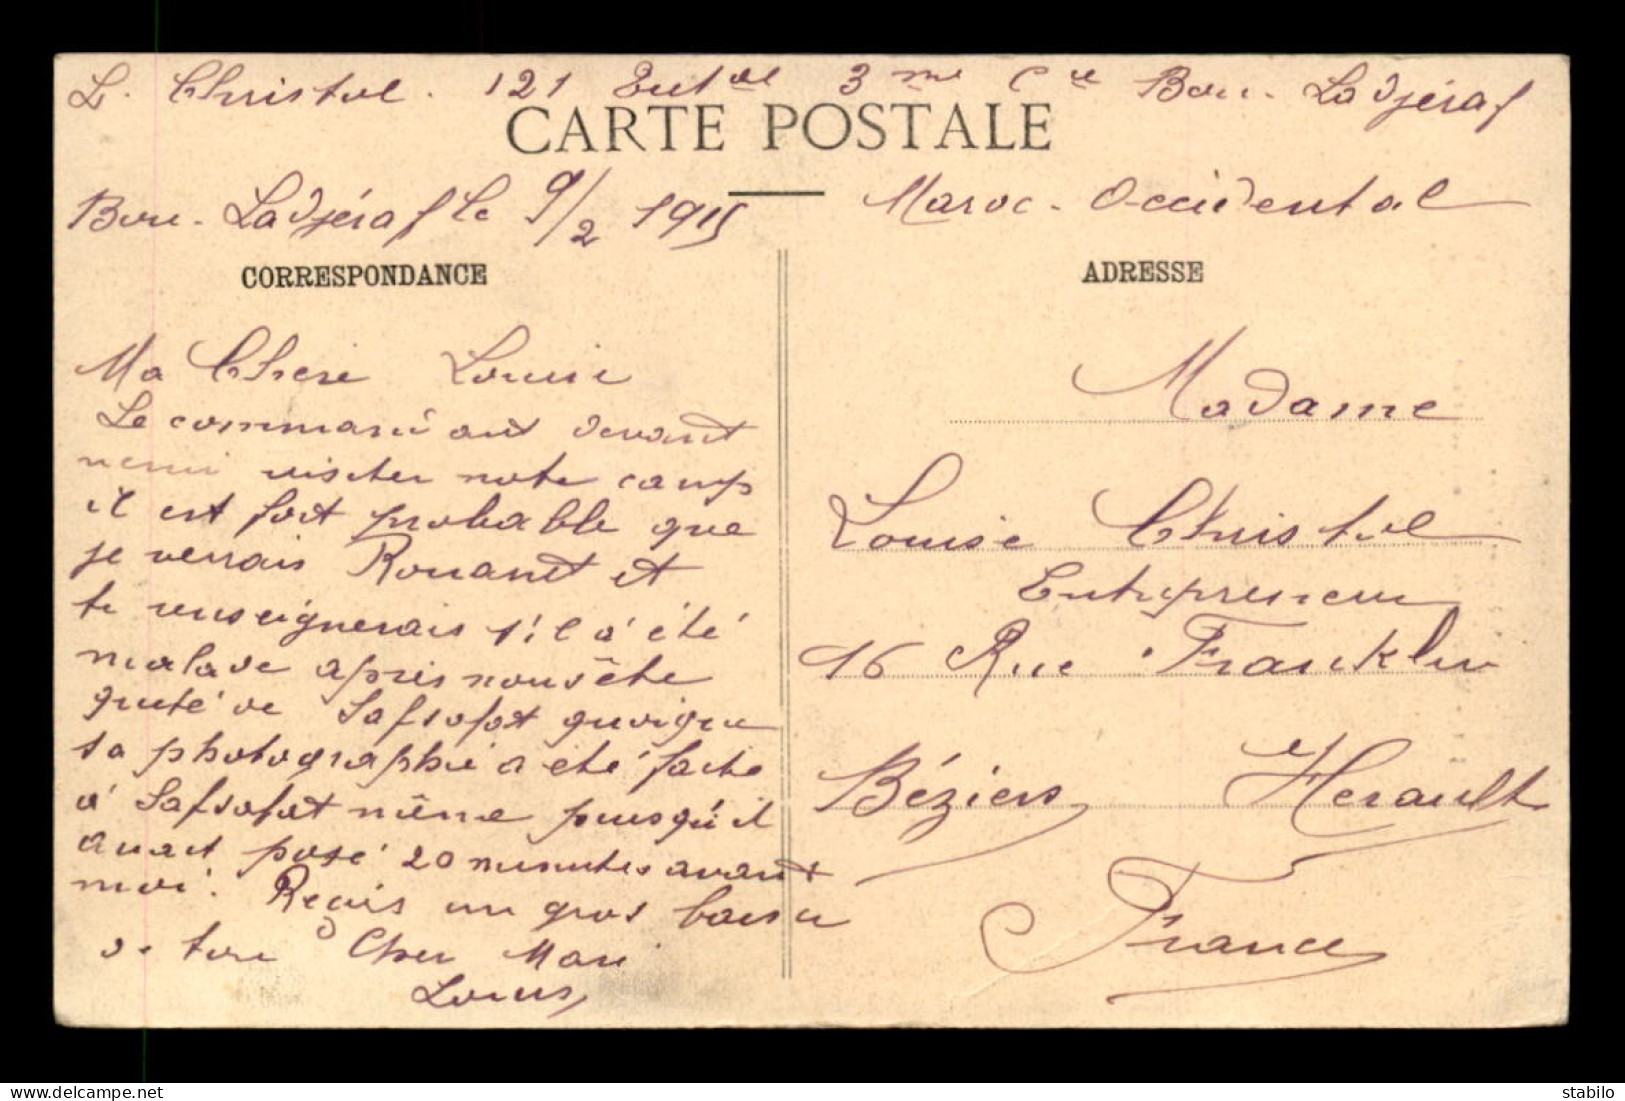 L. Christol. 121 Ent^al 3^me C^ie Bou-Ladjéraf
CARTE POSTALE
Maroc-Occidental
Bou-Ladjéraf le 9/2 1915
CORRESPONDANCE
Ma Chere Louise
Le commandant devant
venir visiter notre camp
il est fort probable que
je verrais Rouanet et
te renseignerais s'il a été
malade après nous être
quité de Safsafat quoique
sa photographie a été faite
à Safsafat même puisqu'il
avait posé 20 minutes avant
moi. Reçois un gros baiser
de ton Cher Mari
Louis
ADRESSE
Madame
Louise Christol
Entrepreneur
16 Rue Franklin
Béziers Herault
France
stabilo